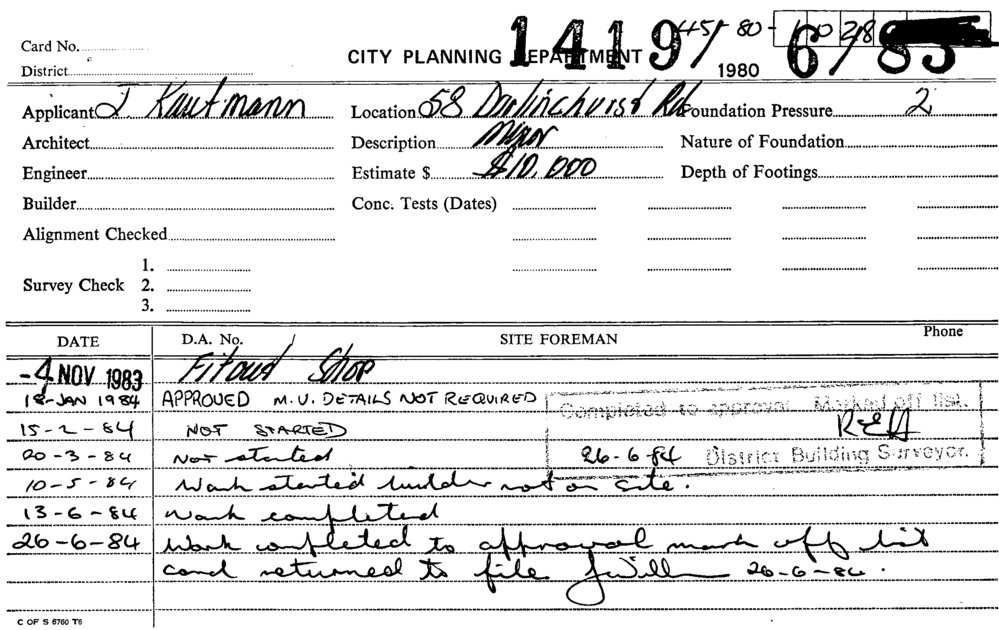 Card No.
CITY PLANNING DEPARTMENT
1419/83
45/ 80-
6/
District
1980
Applicant J. Kaufmann
Location 58 Darlinghurst Rd
Foundation Pressure 2
Architect
Description Minor
Nature of Foundation
Engineer
Estimate $ $10,000
Depth of Footings
Builder
Conc. Tests (Dates)
Alignment Checked
Survey Check
1.
2.
3.
DATE
D.A. No.
SITE FOREMAN
Phone
-4 NOV 1983 Fitout Shop
18-JAN 1984 APPROVED M.V. DETAILS NOT REQUIRED
Completed to approval. Marked off list.
15-2-84 NOT STARTED
REH
20-3-84 Not started
26-6-84 District Building Surveyor.
10-5-84 Work started builder not on site.
13-6-84 Work completed
26-6-84 Work completed to approval mark off list
card returned to file 26-6-84.
C OF S 6760 T6